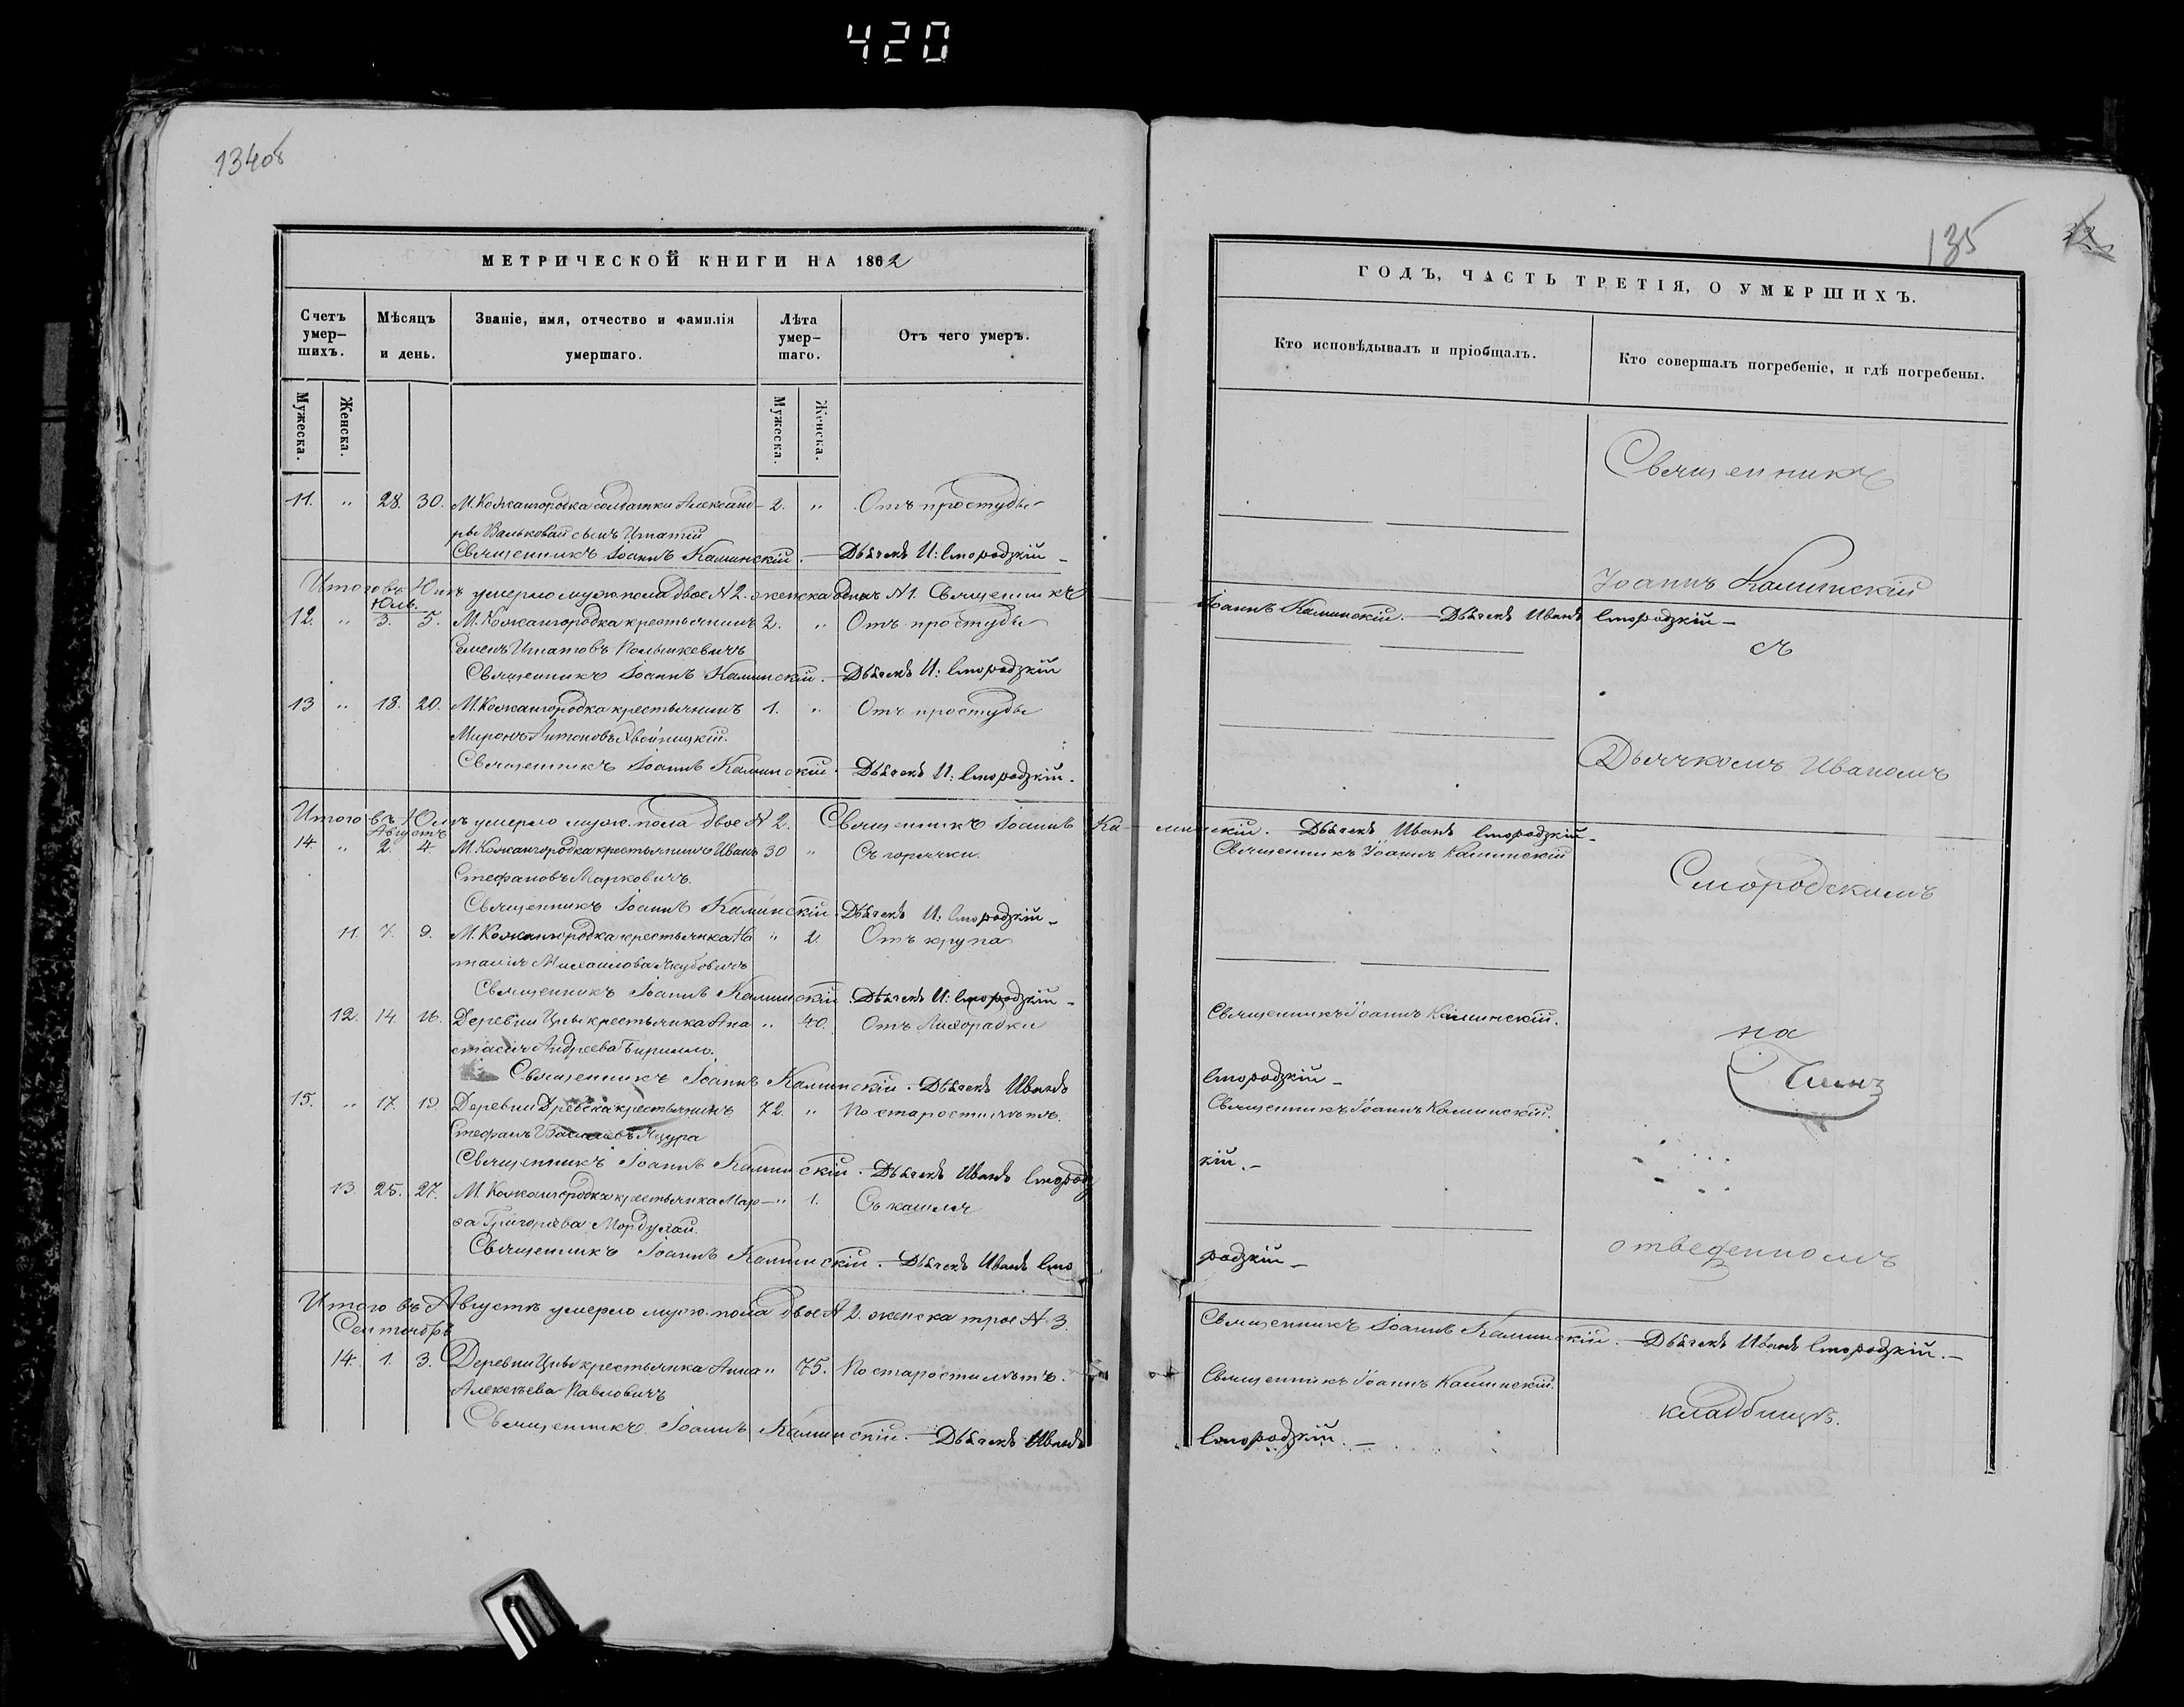 420
134об
МЕТРИЧЕСКОЙ КНИГИ НА 1862
Счетъ умер-шихъ.
Мѣсяцъ и день.
Званіе, имя, отчество и фамилія умершаго.
Лѣта умер-шаго.
Отъ чего умеръ.
Мужеска.
Женска.
Мужеска.
Женска.
11. " 28. 30. М. Кожангородка солдатки Александ- 2. " Отъ простуды
ры Вальковой сынъ Игнатій
Священникъ Іоаннъ Каминскій. Дьячекъ И: Смородзкій
Итого въ Юнѣ умерло муж. пола двое № 2. женска одна № 1. Священникъ
Юль.
12. " 3. 5. М. Кожангородка крестьянинъ 2. " Отъ простуды
Семенъ Игнатовъ
Священникъ Іоаннъ Каминскій. Дьячекъ И: Смородзкій
13 " 18. 20. М. Кожангородка крестьянинъ 1. " Отъ простуды
Миронъ Антоновъ
Священникъ Іоаннъ Каминскій. Дьячекъ И: Смородзкій.
Итого въ Юлѣ умерло муж. пола двое № 2. Священникъ Іоаннъ Ка-
Августъ
14. " 2. 4. М. Кожангородка крестьянинъ Иванъ 30 " Съ горячки.
Стефановъ Марковичъ.
Священникъ Іоаннъ Каминскій. Дьячекъ И: Смородзкій
11. 7. 9. М. Кожангородка крестьянка На " 2. Отъ крупа
талія Михаилова Якубовичъ
Священникъ Іоаннъ Каминскій. Дьячекъ И: Смородзкій
12. 14. 16. Деревни Цны крестьянка Ана " 40. Отъ Лихорадки
стасія Андреева Бирилло.
Священникъ Іоаннъ Каминскій. Дьячекъ Иванъ
15. " 17. 19. Деревни Дребска крестьянинъ 72. " По старости лѣтъ.
Стефанъ Яцура
Священникъ Іоаннъ Каминскій. Дьячекъ Иванъ Смородз
13. 25. 27. М. Кожангородка крестьянка Мар- " 1. Съ кашля
ѳа Григорьева Мордухай.
Священникъ Іоаннъ Каминскій. Дьячекъ Иванъ Смо
Итого въ Августѣ умерло муж. пола двое № 2. женска трое № 3.
Сентябрь
14. 1. 3. Деревни Цны крестьянка Анна " 75. По старости лѣтъ.
Алексѣева Павловичъ
Священникъ Іоаннъ Каминскій. Дьячекъ Иванъ
135
ГОДЪ, ЧАСТЬ ТРЕТІЯ, О УМЕРШИХЪ.
Кто исповѣдывалъ и пріобщалъ.
Кто совершалъ погребеніе, и гдѣ погребены.
Священникъ
Іоаннъ Каминскій
Іоаннъ Каминскій. Дьячекъ Иванъ Смородзкій
съ
Дьячкомъ Иваномъ
минскій. Дьячекъ Иванъ Смородзкій
Священникъ Іоаннъ Каминскій
Смородскимъ
Священникъ Іоаннъ Каминскій.
на
Смородзкій
Священникъ Іоаннъ Каминскій.
кій.
отведенномъ
родзкій
Священникъ Іоаннъ Каминскій. Дьячекъ Иванъ Смородзкій.
Священникъ Іоаннъ Каминскій.
кладбищѣ.
Смородзкій.